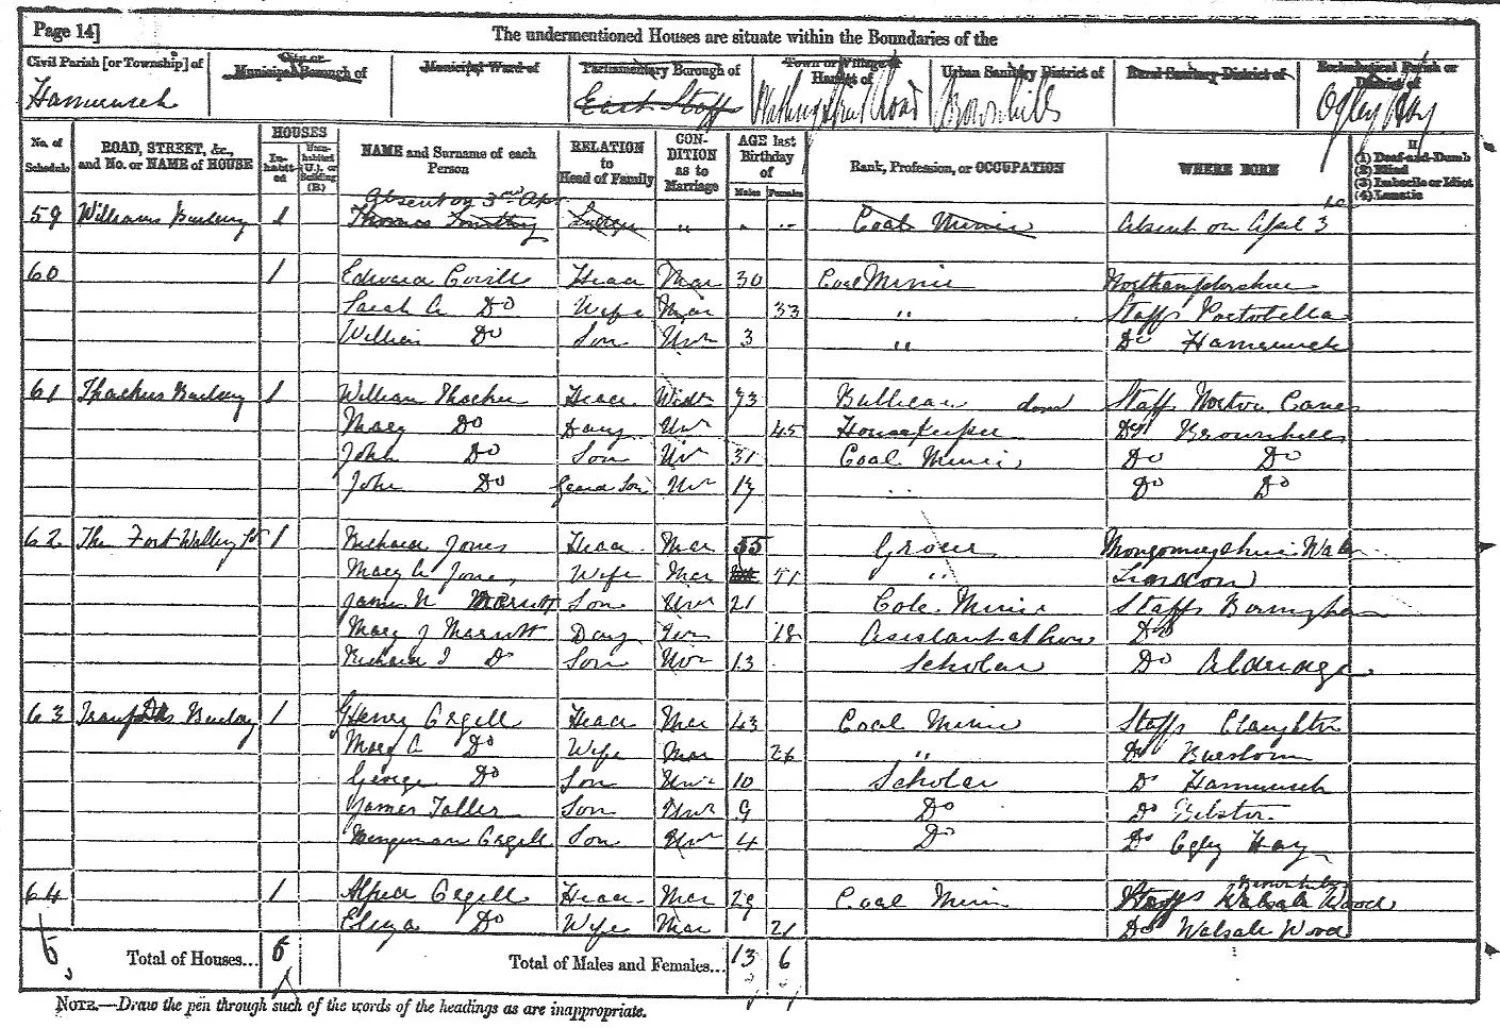 Page 14]
The undermentioned Houses are situate within the Boundaries of the
Civil Parish [or Township] of
City or Municipal Borough of
Municipal Ward of
Parliamentary Borough of
Town or Village or Hamlet of
Urban Sanitary District of
Rural Sanitary District of
Ecclesiastical Parish or District of
Hammerwich
East Staffs
Road
Brownhills
Ogley Hay
No. of Schedule
ROAD, STREET, &c., and No. or NAME of HOUSE
HOUSES
Inhabited
Uninhabited (U.), or Building (B.)
NAME and Surname of each Person
RELATION to Head of Family
CONDITION as to Marriage
AGE last Birthday of
Males Females
Rank, Profession, or OCCUPATION
WHERE BORN
If
(1) Deaf-and-Dumb
(2) Blind
(3) Imbecile or Idiot
(4) Lunatic
Absent on 3rd Apr
59 Williams 1 Thomas Lodger " Coal Miner Absent on Apl 3
60 1 Edward Head Mar 30 Coal Miner Northamptonshire
Sarah A Do Wife Mar 33 " Staffs Portobello
William Do Son Unr 3 " Do Hammerwich
61 1 William Thacker Head Widr 73 Staff Norton Canes
Mary Do Daur Unr 45 Housekeeper Do Brownhills
John Do Son Unr 31 Coal Miner Do Do
John Do Grand Son Unr 17 " Do Do
62 The Fort 1 Richard Jones Head Mar 55 Grocer Montgomeryshire Wales
Mary A Jones Wife Mar 51 " London
James N Marriott Son Unr 21 Cole Miner Staffs Birmingham
Mary J Marriott Daur Unr 18 Assistant at home Do
Richard J Do Son Unr 13 Scholar Do Aldridge
63 1 Henry Orgill Head Mar 43 Coal Miner Staffs
Mary A Do Wife Mar 26 " Do
George Do Son Unr 10 Scholar Do Hammerwich
James Son Unr 9 Do Do Bilston
Orgill Son Unr 4 Do Do Ogley Hay
Brownhills
64 1 Alfred Orgill Head Mar 29 Coal Miner Staffs Walsall Wood
Eliza Do Wife Mar 21 Do Walsall Wood
Total of Houses...
Total of Males and Females... 13 6
NOTE.—Draw the pen through such of the words of the headings as are inappropriate.